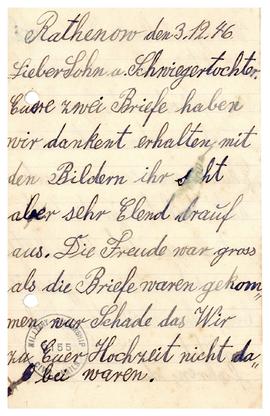 Rathenow den 3.12.46
Lieber Sohn u. Schwiegertochter.
Eure zwei Briefe haben
wir dankent erhalten, mit
den Bildern ihr seht
aber sehr Elend drauf
aus. Die Freude war gross
als die Briefe waren gekom-
men, nur Schade das Wir
zu Euer Hochzeit nicht da
bei waren.